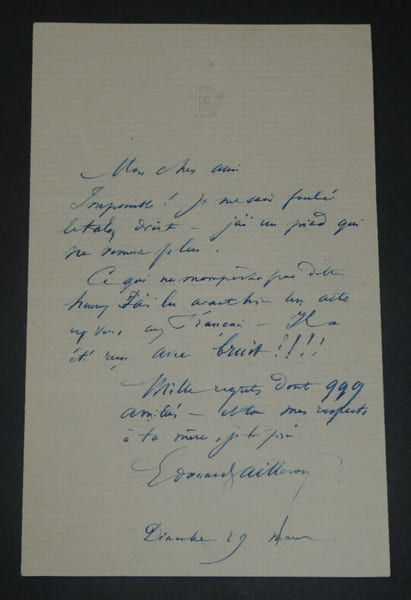 Mon cher ami
Impossible! je me suis foulé
le talon droit - j'ai un pied qui
ne remue plus.
Ce qui ne m'empêche pas d'être
J'ai lu avant hier un acte
en vers, aux Français - Il a
été reçu avec bruit!!!!
Mille regrets dont 999
amitiés - et tous mes respects
à ta mère, je te prie
Edouard Pailleron
Dimanche 29 mars